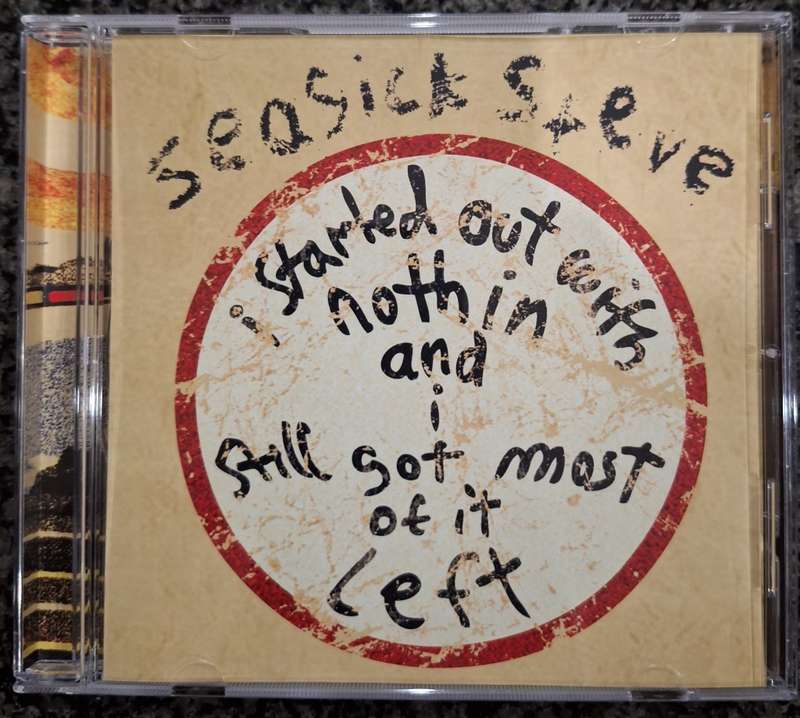 Seasick Steve
i started out with
nothin
and
i
still got most
of it
left